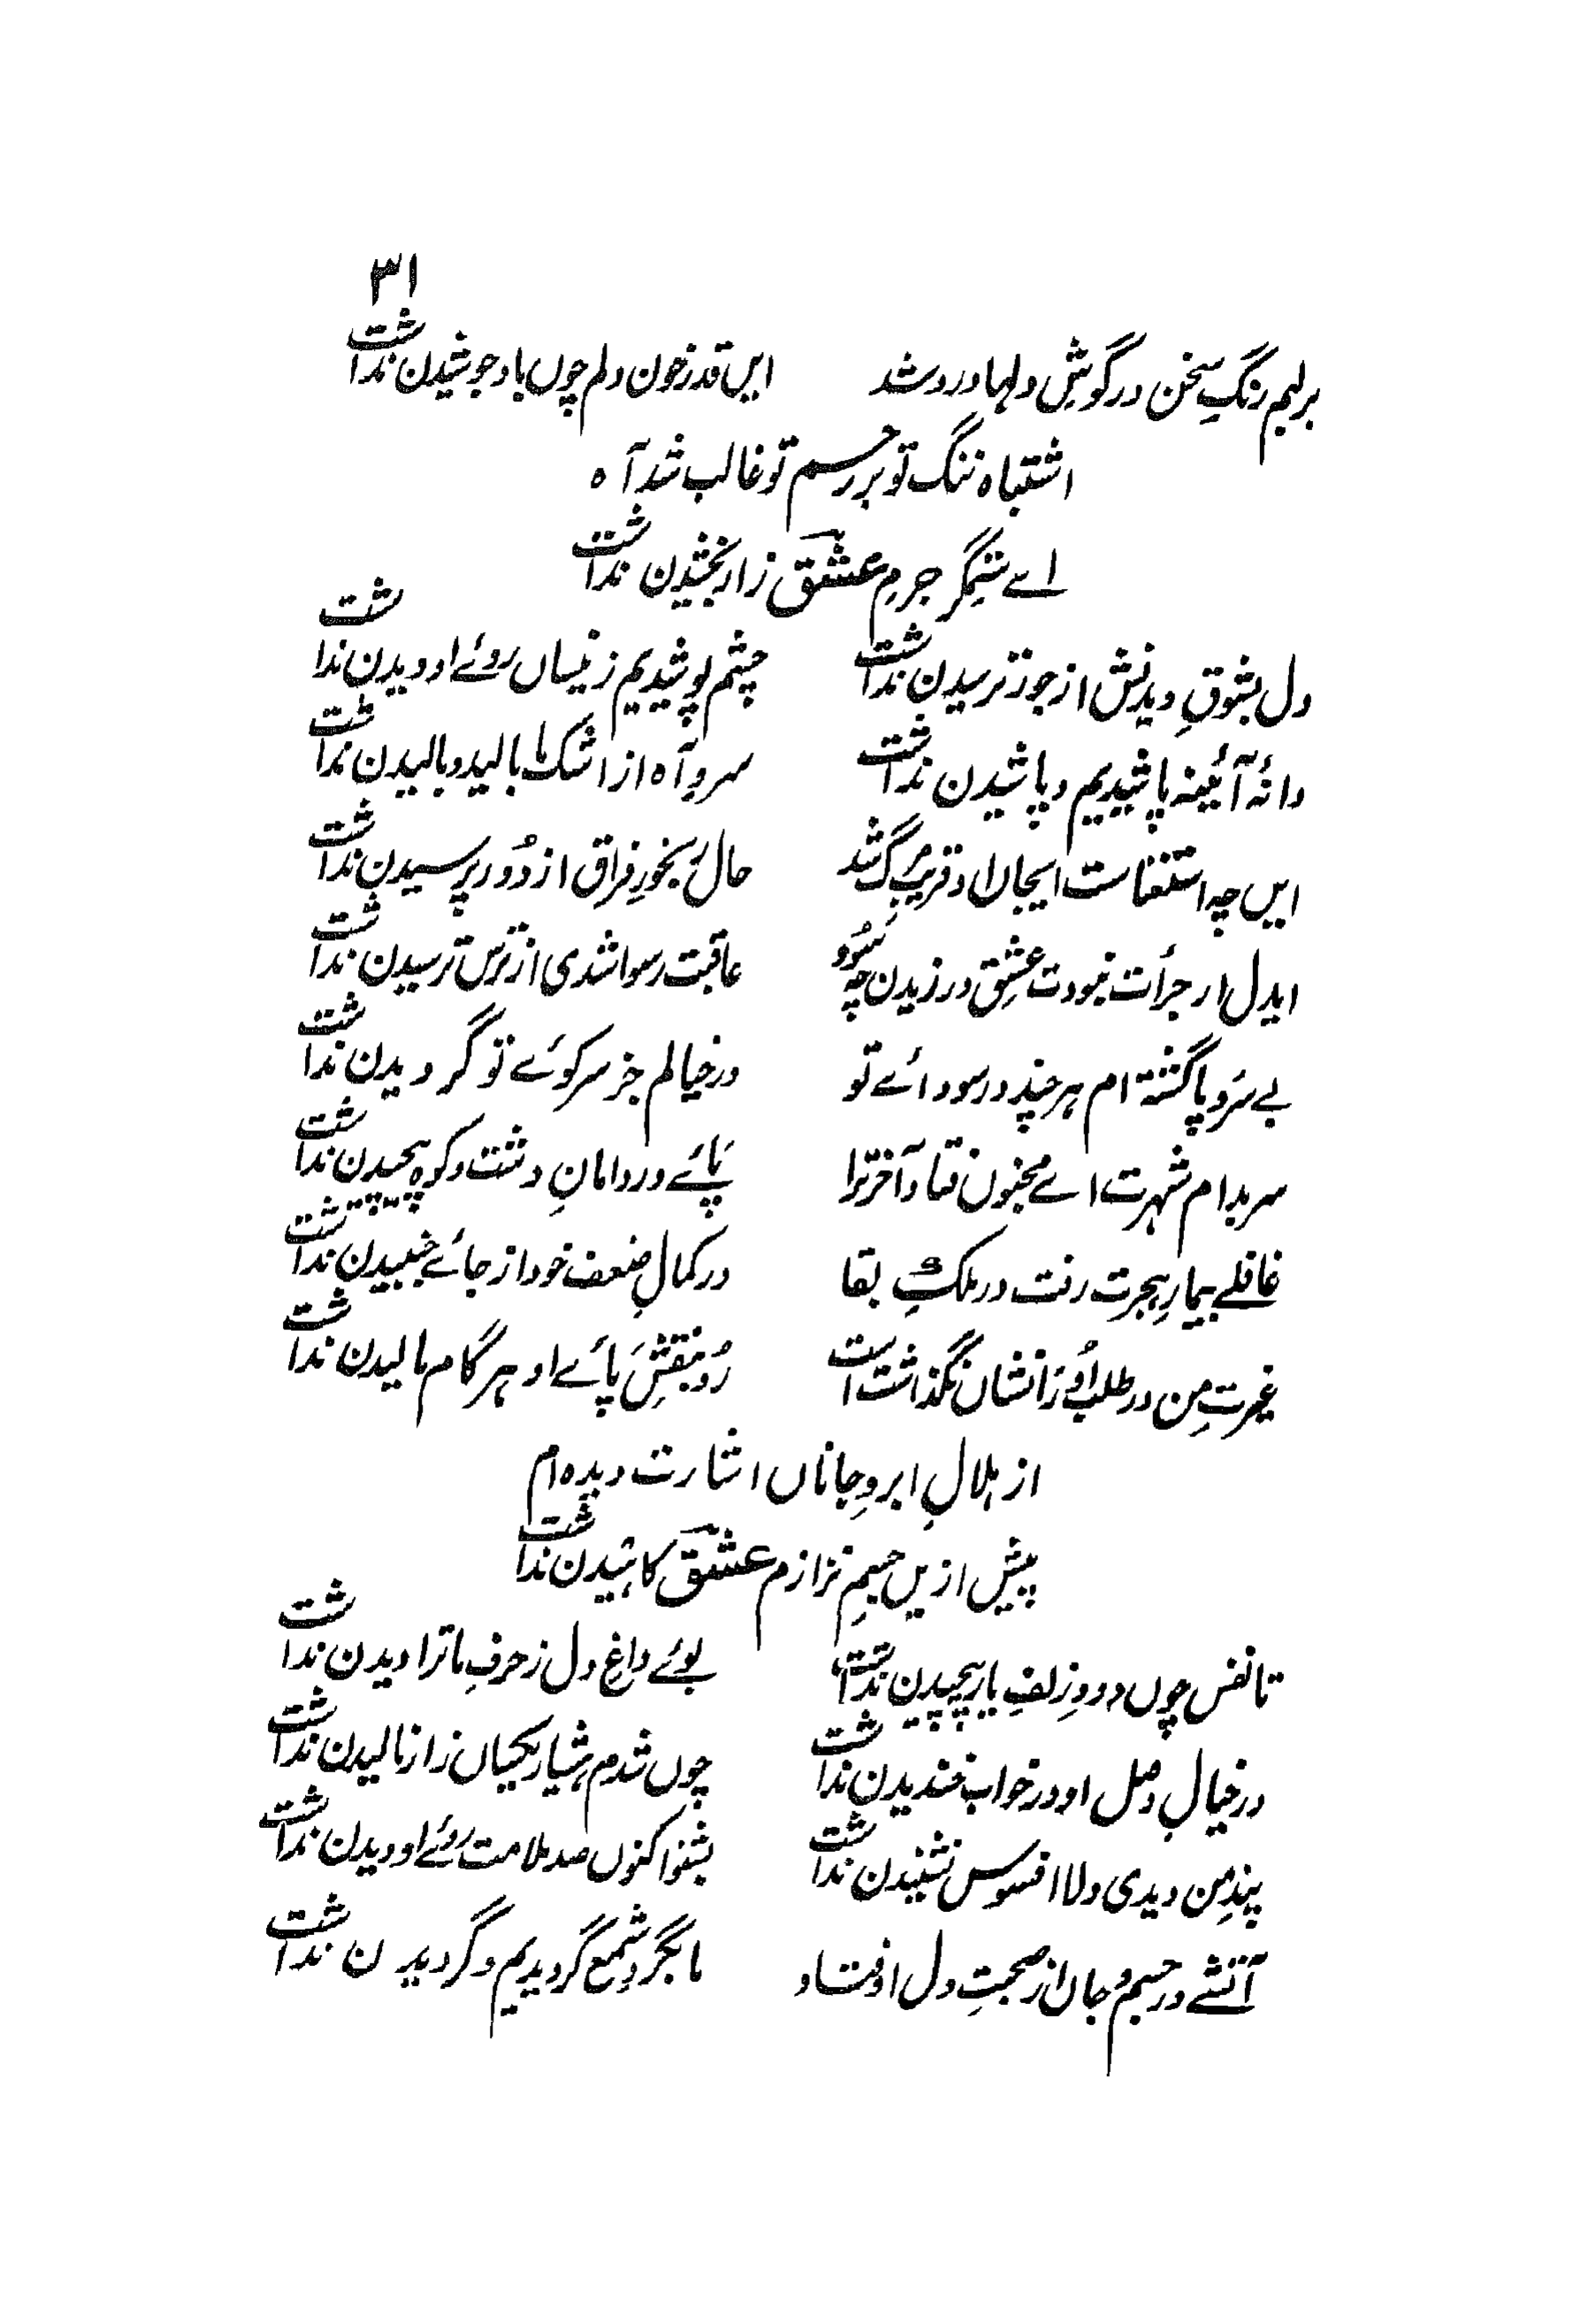 ۳۱
برلبم رنگِ سخن در گوشِ دلہا درد شد
ایں قدر خون دلم چوں باد جوشیدن نداشت
اشتباہ ننگ تو بر رحم تو غالب شد آہ
اے ستمگر جرمِ عشقؔ زار بخشیدن نداشت
دل بشوقِ دیدنش از جوز ترسیدن نداشت
چشم پوشیدیم زینساں روئے او دیدن نداشت
دانۂ آئینہ پاشیدیم و پاشیدن نداشت
سروِ آہ از اشک ما بالید و بالیدن نداشت
ایں چہ استغناست ایجاں او قریبِ مرگ شد
حال رنجورِ فراق از دُور پرسیدن نداشت
ایدل ار جرأت نبودت عشق ورزیدن چہ سُود
عاقبت رسوا شدی از ترس ترسیدن نداشت
بے سَر و پا گشتہ ام ہر چند در سودائے تو
در خیالم جز سر کوئے تو گردیدن نداشت
سر بدام شہرت اے مجنوں فتاد آخر ترا
پائے در دامانِ دشت و کوہ پیچیدن نداشت
غافلے بیمارِ ہجرت رفت در ملکِ بقا
در کمالِ ضعف خود از جائے جنبیدن نداشت
غیرتِ من در طلب اُو را نشاں نگذاشت است
رُو بنقشِ پائے او ہر گام مالیدن نداشت
از ہلالِ ابروِ جاناں اشارت دیدہ ام
پیش ازیں جسمِ نزارم عشقؔ کاہیدن نداشت
تا نفس چوں دودِ زلفِ یار پیچیدن نداشت
بوئے داغِ دل ز حرفِ ما ترا دیدن نداشت
در خیالِ وصل او در خواب خندیدن نداشت
چوں شدم ہشیار یکجیاں زار نالیدن نداشت
پندِ من دیدی دلا افسوس نشنیدن نداشت
بشنو اکنوں صد ملامت روئے او دیدن نداشت
آتشے در جسم و جاں از صحبتِ دل اوفتاد
ما بگردِ شمع گردیدیم و گردیدن نداشت